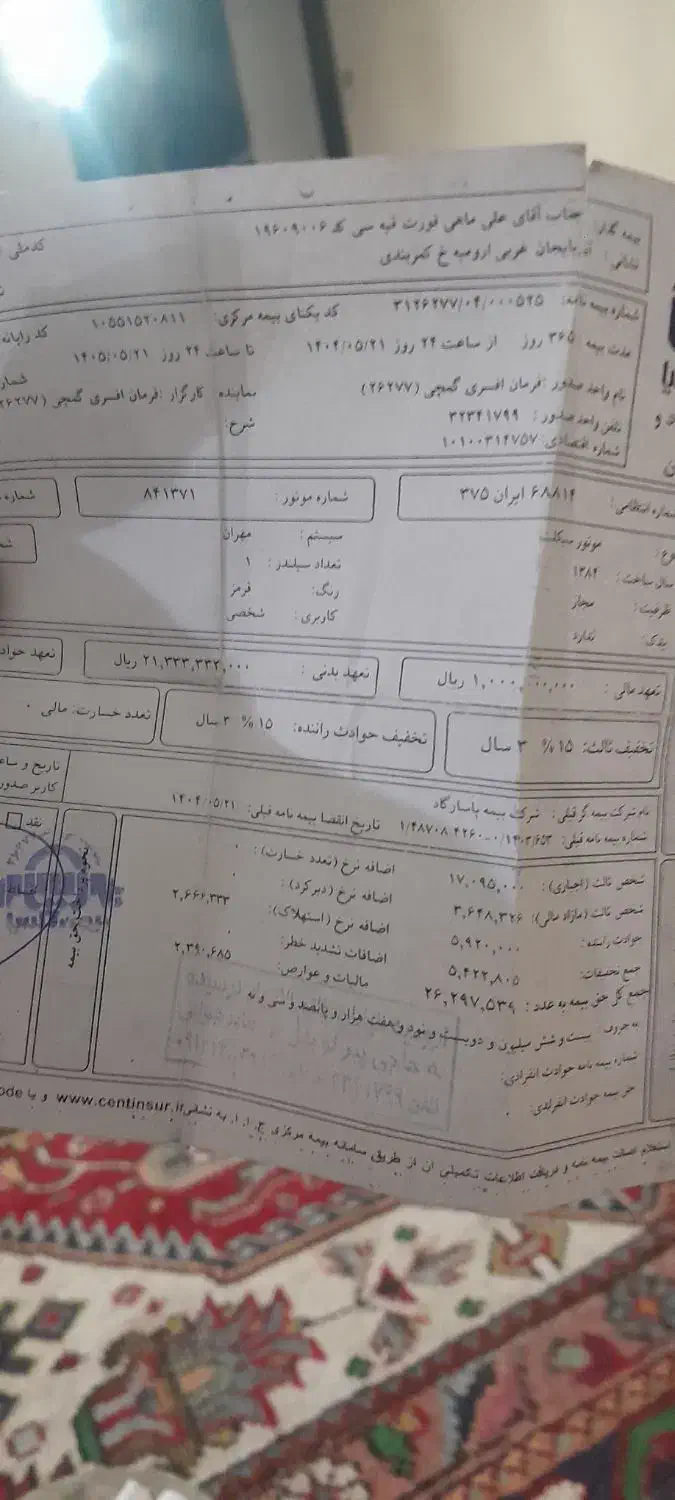 بیمه گذار: جناب آقای علی ماهی فورت قیه سی کد ۱۹۶۰۹۰۰۶ کدملی
نشانی: آذربایجان غربی ارومیه خ کمربندی
شماره بیمه نامه: ۳۱۲۶۲۷۷/۰۴/۰۰۰۵۲۵ کد یکتای بیمه مرکزی: ۱۰۵۵۱۵۲۰۸۱۱ کد رایانه
مدت بیمه ۳۶۵ روز از ساعت ۲۴ روز ۱۴۰۴/۰۵/۲۱ تا ساعت ۲۴ روز ۱۴۰۵/۰۵/۲۱
نام واحد صدور: فرمان افسری گمچی (۲۶۲۷۷) نماینده کارگزار: فرمان افسری گمچی (۲۶۲۷۷) شمار
تلفن واحد صدور: ۳۲۳۴۱۷۹۹ شرح:
شماره اقتصادی: ۱۰۱۰۰۳۱۴۷۵۷
شماره انتظامی: ۶۸۸۱۴ ایران ۳۷۵ شماره موتور: ۸۴۱۳۷۱ شماره
نوع: موتور سیکلت سیستم: مهران
سال ساخت: ۱۳۸۴ تعداد سیلندر: ۱
ظرفیت: مجاز رنگ: قرمز
یدک: ندارد کاربری: شخصی
تعهد مالی: ۱,۰۰۰,۰۰۰,۰۰۰ ریال تعهد بدنی: ۲۱,۳۳۳,۳۳۲,۰۰۰ ریال تعهد حواد
تخفیف ثالث: ۱۵ % ۳ سال تخفیف حوادث راننده: ۱۵ % ۳ سال تعداد خسارت: مالی ۰
نام شرکت بیمه گر قبلی: شرکت بیمه پاسارگاد تاریخ انقضا بیمه نامه قبلی: ۱۴۰۴/۰۵/۲۱ تاریخ و ساع
شماره بیمه نامه قبلی: کاربر صدور
شخص ثالث (اجباری): ۱۷,۰۹۵,۰۰۰ اضافه نرخ (تعدد خسارت): ۰ نقد
شخص ثالث (مازاد مالی): ۳,۶۴۸,۳۲۶ اضافه نرخ (دیرکرد): ۰
حوادث راننده: ۵,۹۲۰,۰۰۰ اضافه نرخ (استهلاک): ۲,۶۶۶,۳۳۳
جمع تخفیفات: ۵,۴۲۲,۸۰۵ اضافات تشدید خطر: ۰
جمع کل حق بیمه به عدد: ۲۶,۲۹۷,۵۳۹ مالیات و عوارض: ۲,۳۹۰,۶۸۵
به حروف: بیست و شش میلیون و دویست و نود و هفت هزار و پانصد و سی و نه
شماره بیمه نامه حوادث انفرادی:
حق بیمه حوادث انفرادی: ۰
استعلام اصالت بیمه نامه و دریافت اطلاعات تکمیلی آن از طریق سامانه بیمه مرکزی ج. ا. ا. به نشانی www.centinsur.ir و یا ode